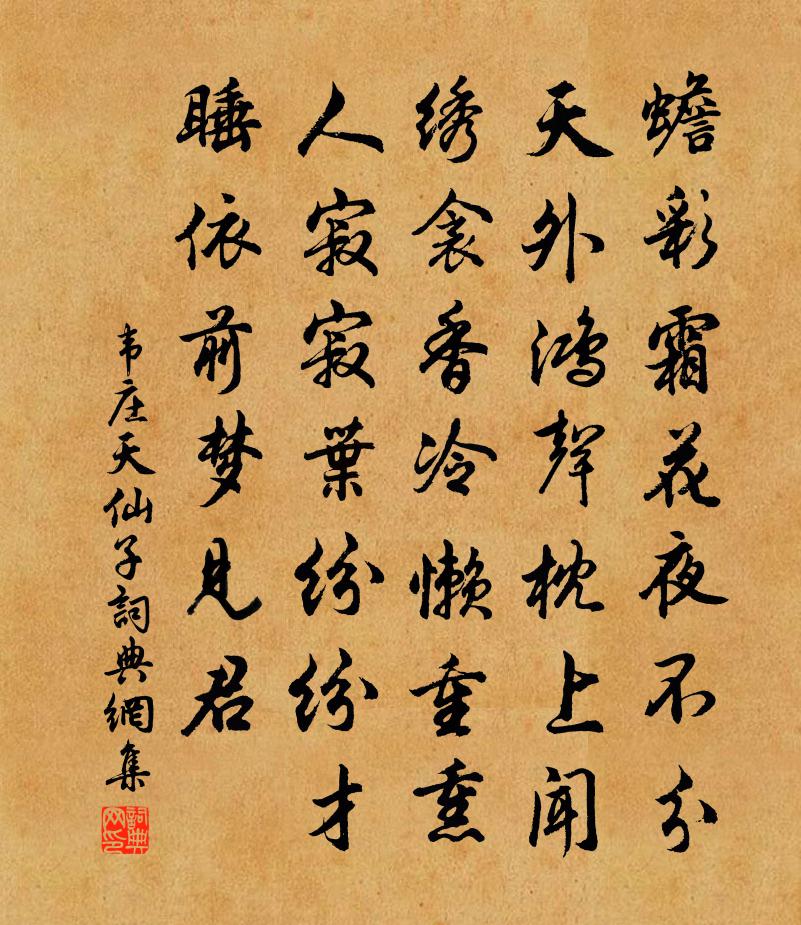 蟾彩霜花夜不分
天外鸿聲枕上闻
绣衾香冷懒重熏
人寂寂葉纷纷才
睡依前梦见君
韦庄天仙子詞典網集
詞典网印